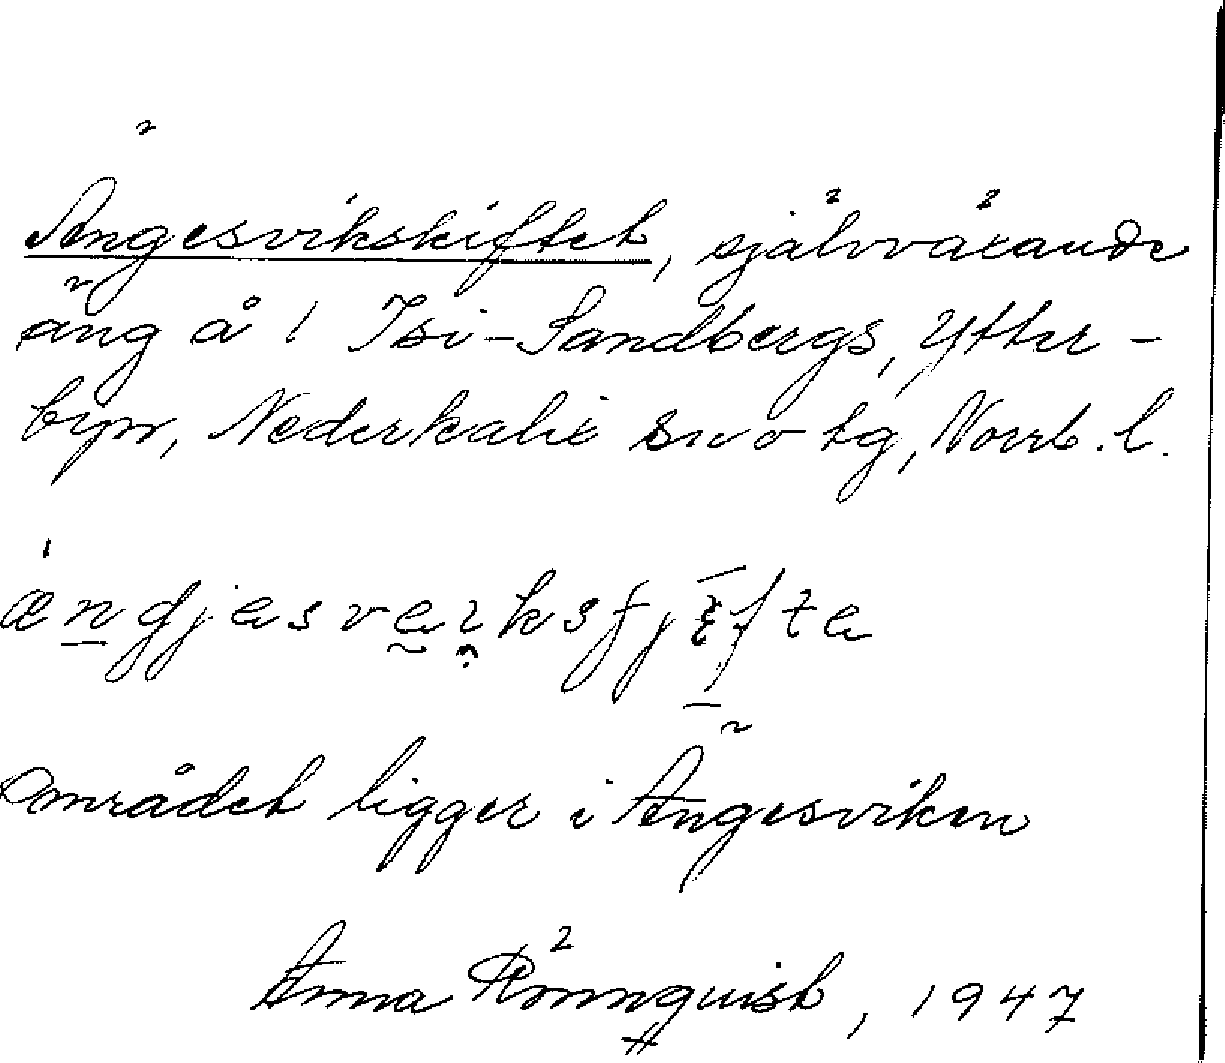 Ängesvikskiftet, självväxande
äng å 1 Isi-Sandbergs, Ytter-
byn, Nederkalix sn o tg, Norrb. l.
Området ligger i Ängesviken
Anna Rönnquist, 1947